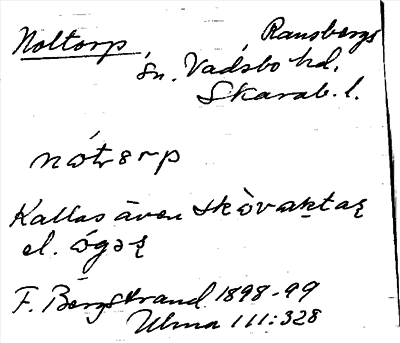 Noltorp, Ransbergs
sn. Vadsbo hd.
Skarab. l.
nòtərp
Kallas även skòvaktaṟ
el. ògəṟ
F. Bergstrand 1898-99
Ulma 111:328